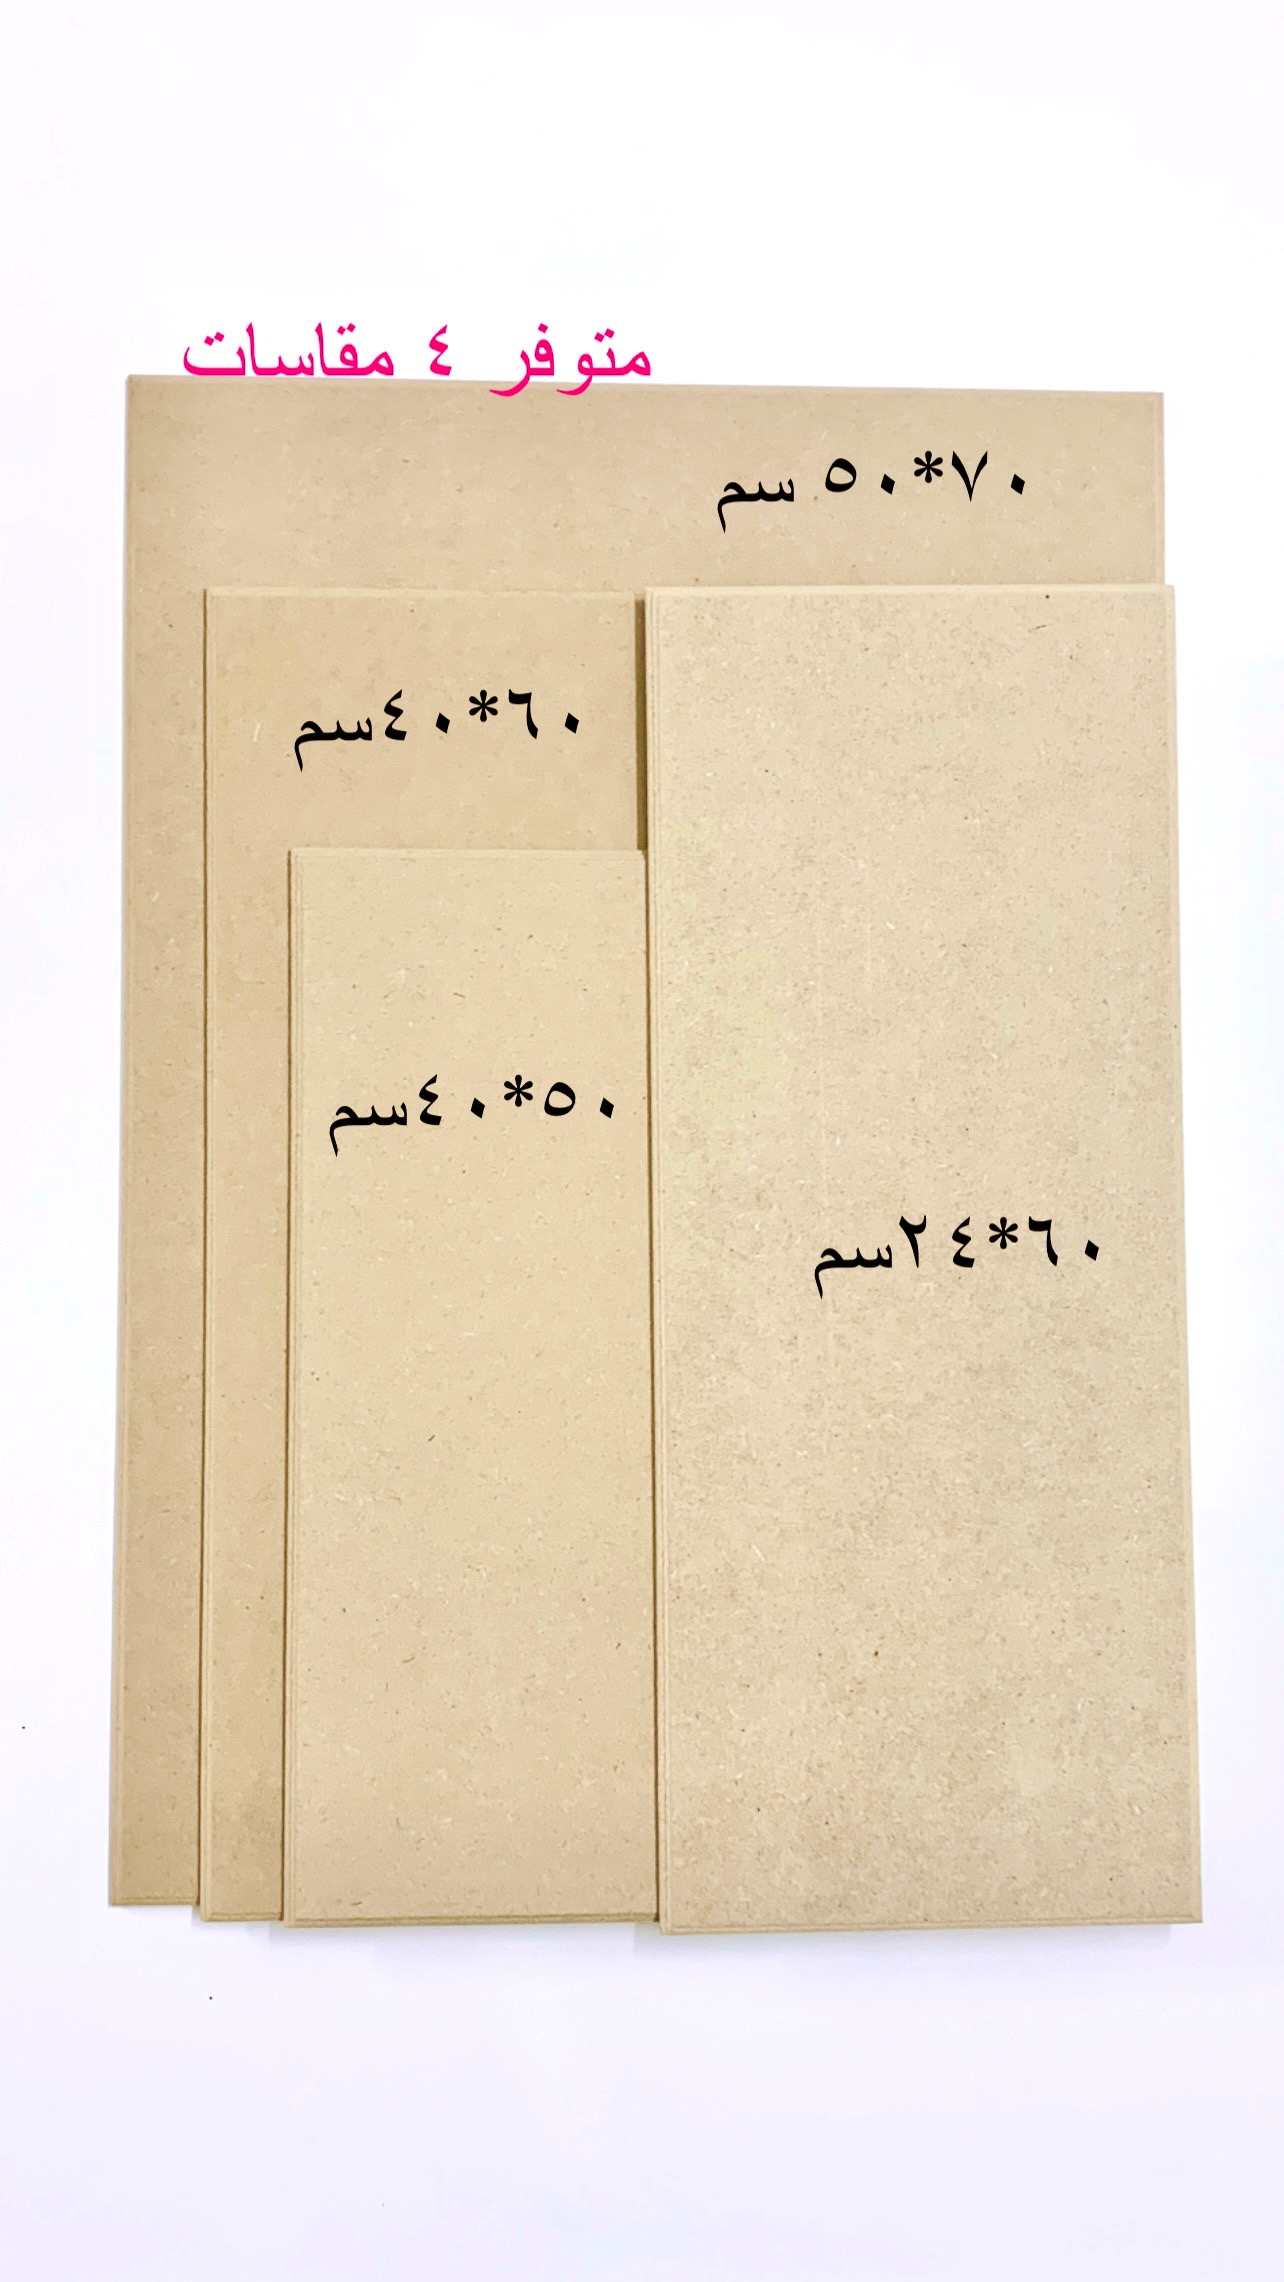 متوفر ٤ مقاسات
٧٠*٥٠ سم
٦٠*٤٠سم
٥٠*٤٠سم
٦٠*٢٤سم